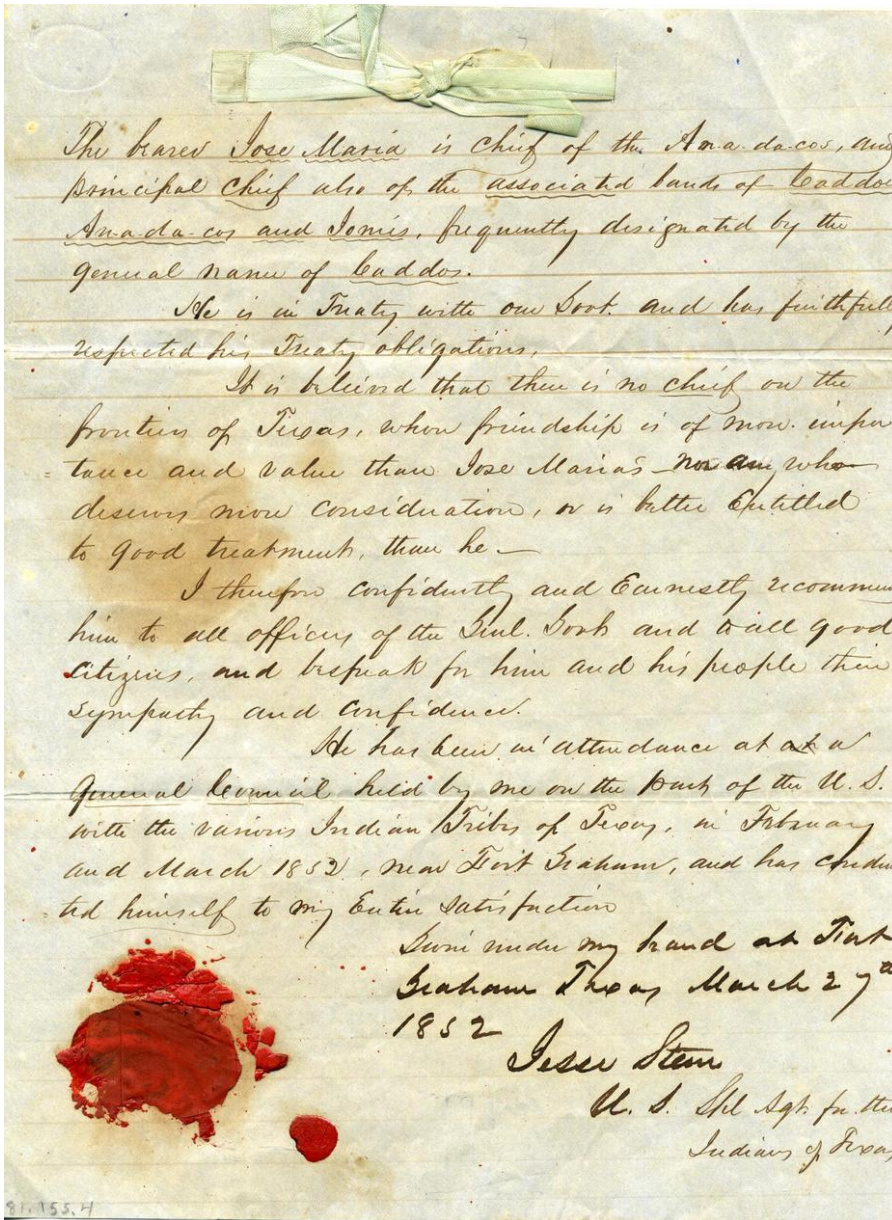 The bearer Jose Maria is chief of the An-a-da-cos, and
principal chief also of the associated bands of Caddos
An-a-da-cos and Ionis, frequently designated by the
general name of Caddos.
He is in Treaty with our Govt. and has faithfully
respected his Treaty obligations.
It is believed that there is no chief on the
frontiers of Texas, whose friendship is of more impor
tance and value than Jose Maria's nor any who
deserves more consideration, or is better Entitled
to good treatment, than he —
I therefore confidently and Earnestly recommen
him to all officers of the Genl. Govt. and to all good
citizens, and bespeak for him and his people their
sympathy and confidence.
He has been in attendance at at a
General Council held by me on the part of the U. S.
with the various Indian Tribes of Texas, in February
and March 1852, near Fort Graham, and has conduc
ted himself to my Entire satisfaction
Given under my hand at Fort
Graham Texas March 27th
1852
Jesse Stem
U. S. Spl Agt. for the
Indians of Texas
81.155.4